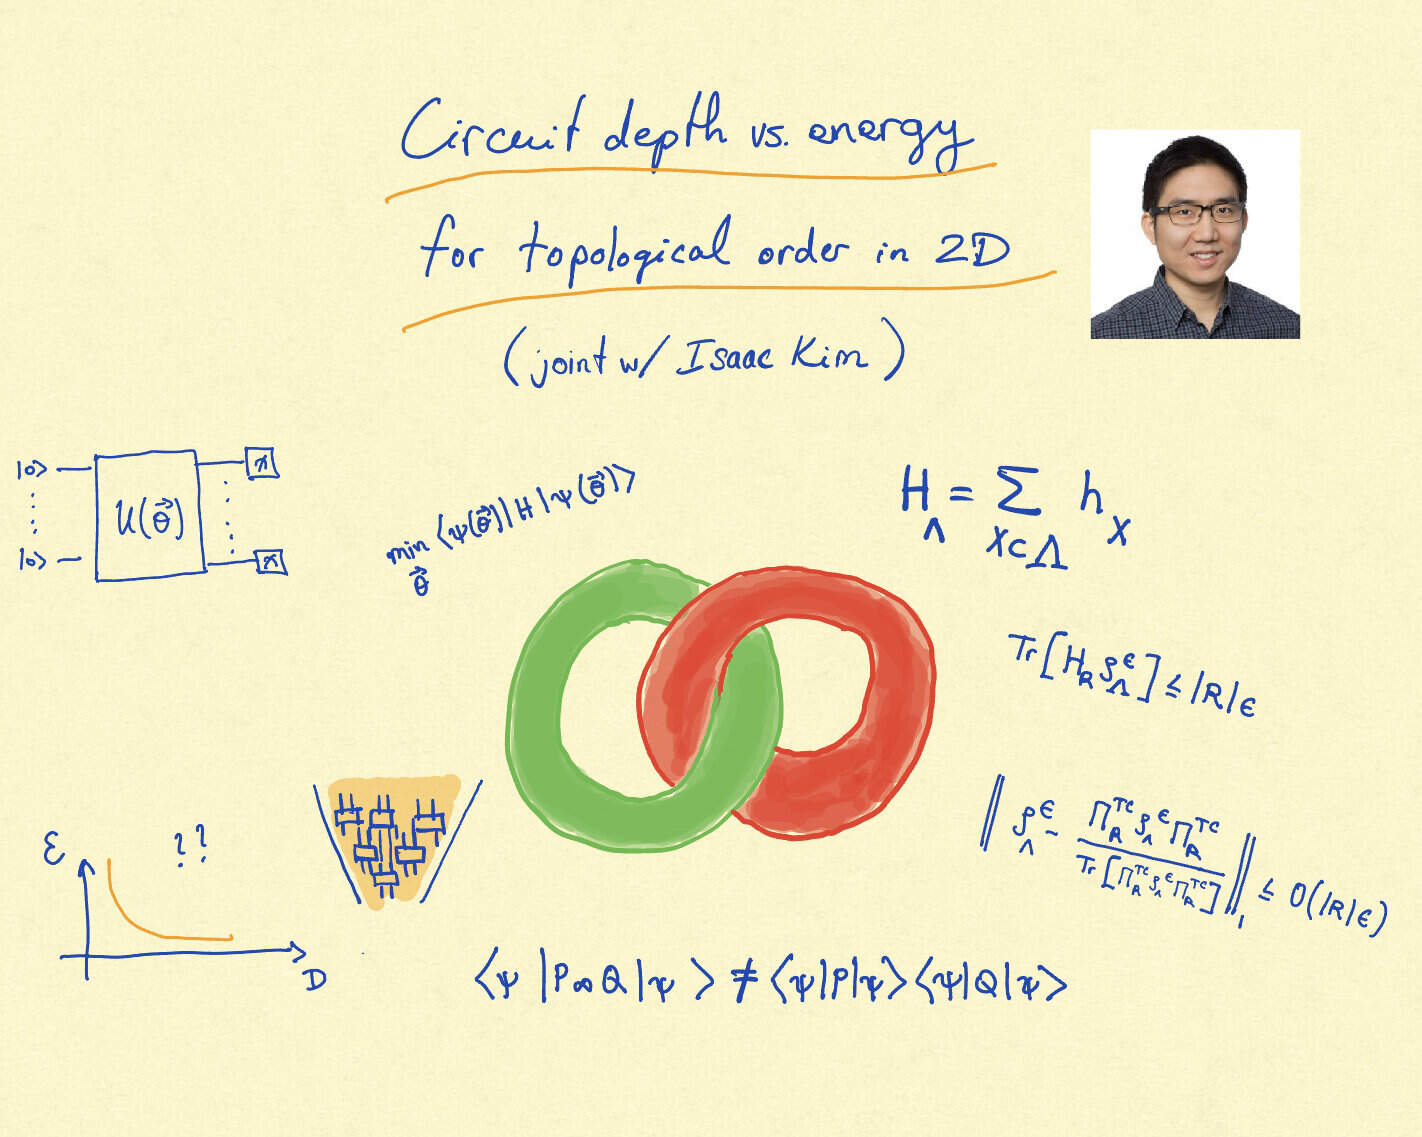 Circuit depth vs. energy
for topological order in 2D
(joint w/ Isaac Kim)
|0> U(θ⃗)
|0>
min_θ⃗ ⟨ψ(θ⃗)|H|ψ(θ⃗)⟩
H_Λ = Σ_{X⊂Λ} h_X
Tr[H_R ρ_Λ^ε] ≤ |R|ε
ε ??
D
‖ρ_Λ^ε - Π_R^TC ρ_Λ^ε Π_R^TC / Tr[Π_R^TC ρ_Λ^ε Π_R^TC]‖_1 ≤ O(|R|ε)
⟨ψ|P∞Q|ψ⟩ ≠ ⟨ψ|P|ψ⟩⟨ψ|Q|ψ⟩